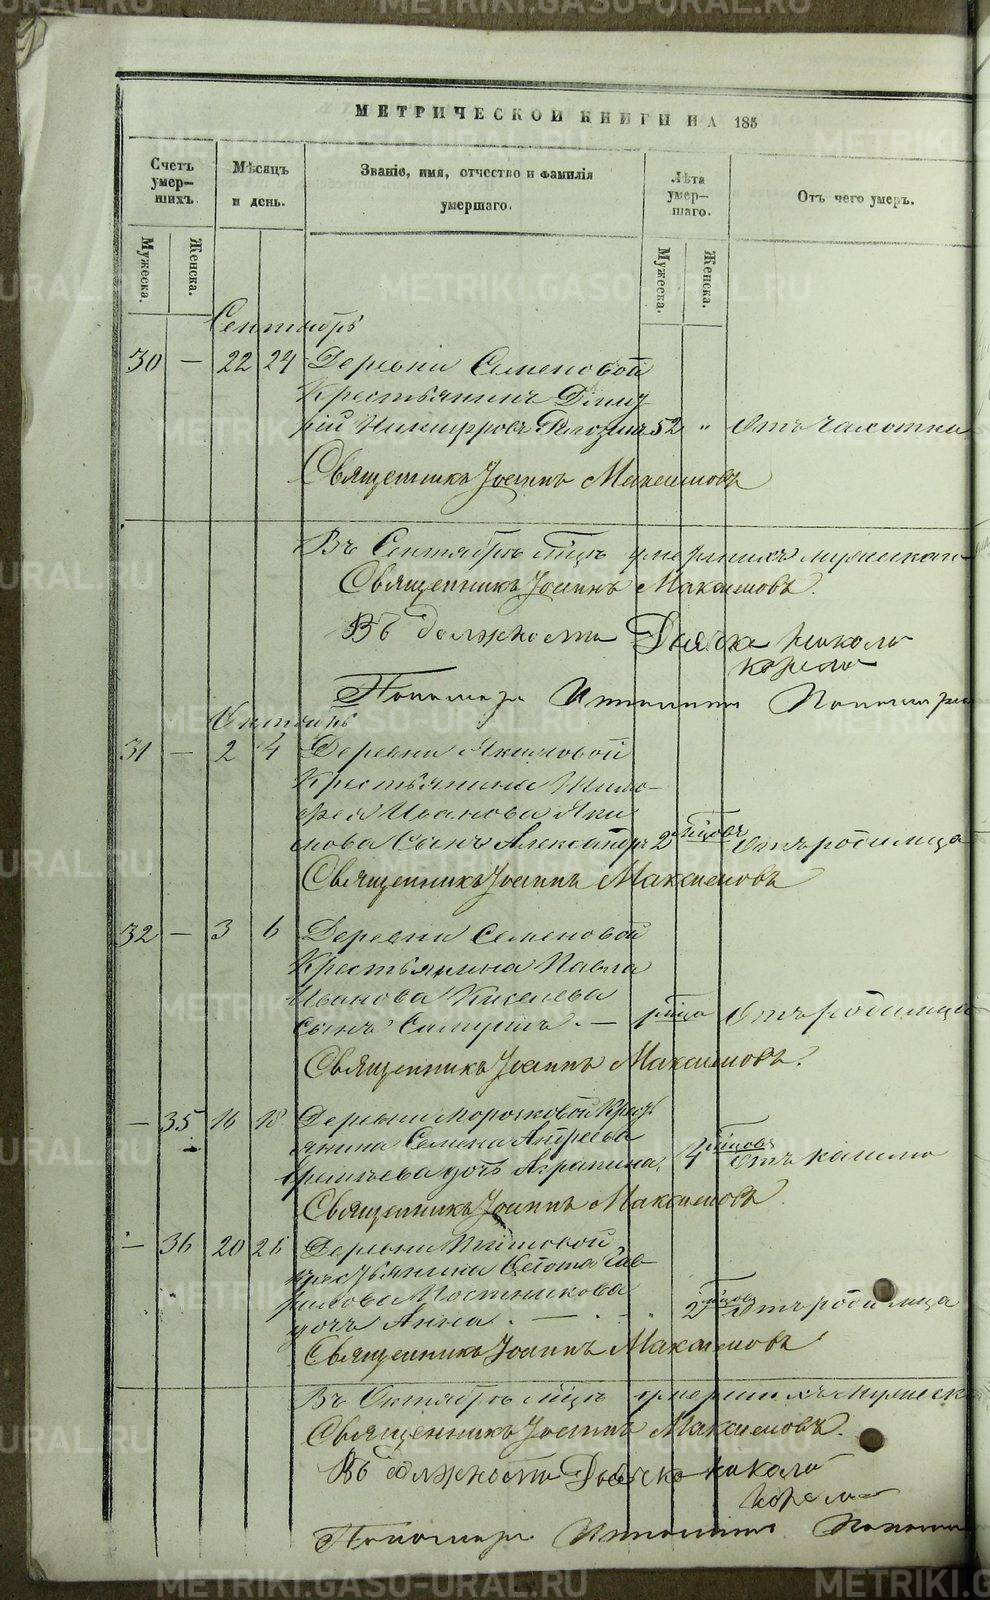 МЕТРИЧЕСКОЙ КНИГИ НА 185
Счетъ умер-шихъ.
Мѣсяцъ и день.
Званіе, имя, отчество и фамилія умершаго.
Лѣта умер-шаго.
Отъ чего умеръ.
Мужеска. Женска. Мужеска. Женска.
Сентябрь
30 — 22 24 Деревни Семеновой
Крестьянинъ Дмит-
рій Никифоровъ 52 „ Отъ чахотки
Священникъ Іоаннъ Максимовъ
Въ Сентябрѣ мѣцѣ умершихъ мужескаго
Священникъ Іоаннъ Максимовъ.
Въ должности Дьячка
Пономарь
Октябрь
31 — 2 4 Деревни Якимовой
Крестьянина Тимо-
фея Иванова Яки
мова Сынъ Александръ 2 мѣцовъ Отъ родимца
Священникъ Іоаннъ Максимовъ
32 — 3 6 Деревни Семеновой
Крестьянина Павла
Иванова Киселева
Сынъ . — мѣца Отъ родимца
Священникъ Іоаннъ Максимовъ.
— 35 16 18 Деревни
янина Семена Андреева
дочь Агрипина, 4 мѣцовъ Отъ кашлю
Священникъ Іоаннъ Максимовъ.
— 36 20 Деревни
крестьянина Гав-
рилова Постникова
дочь Анна. — 2 мѣцовъ Отъ родимца
Священникъ Іоаннъ Максимовъ
Въ Октябрѣ мѣцѣ умершихъ мужеск
Священникъ Іоаннъ Максимовъ.
Въ должности Дьячка
Пономарь
METRIKI.GASO-URAL.RU